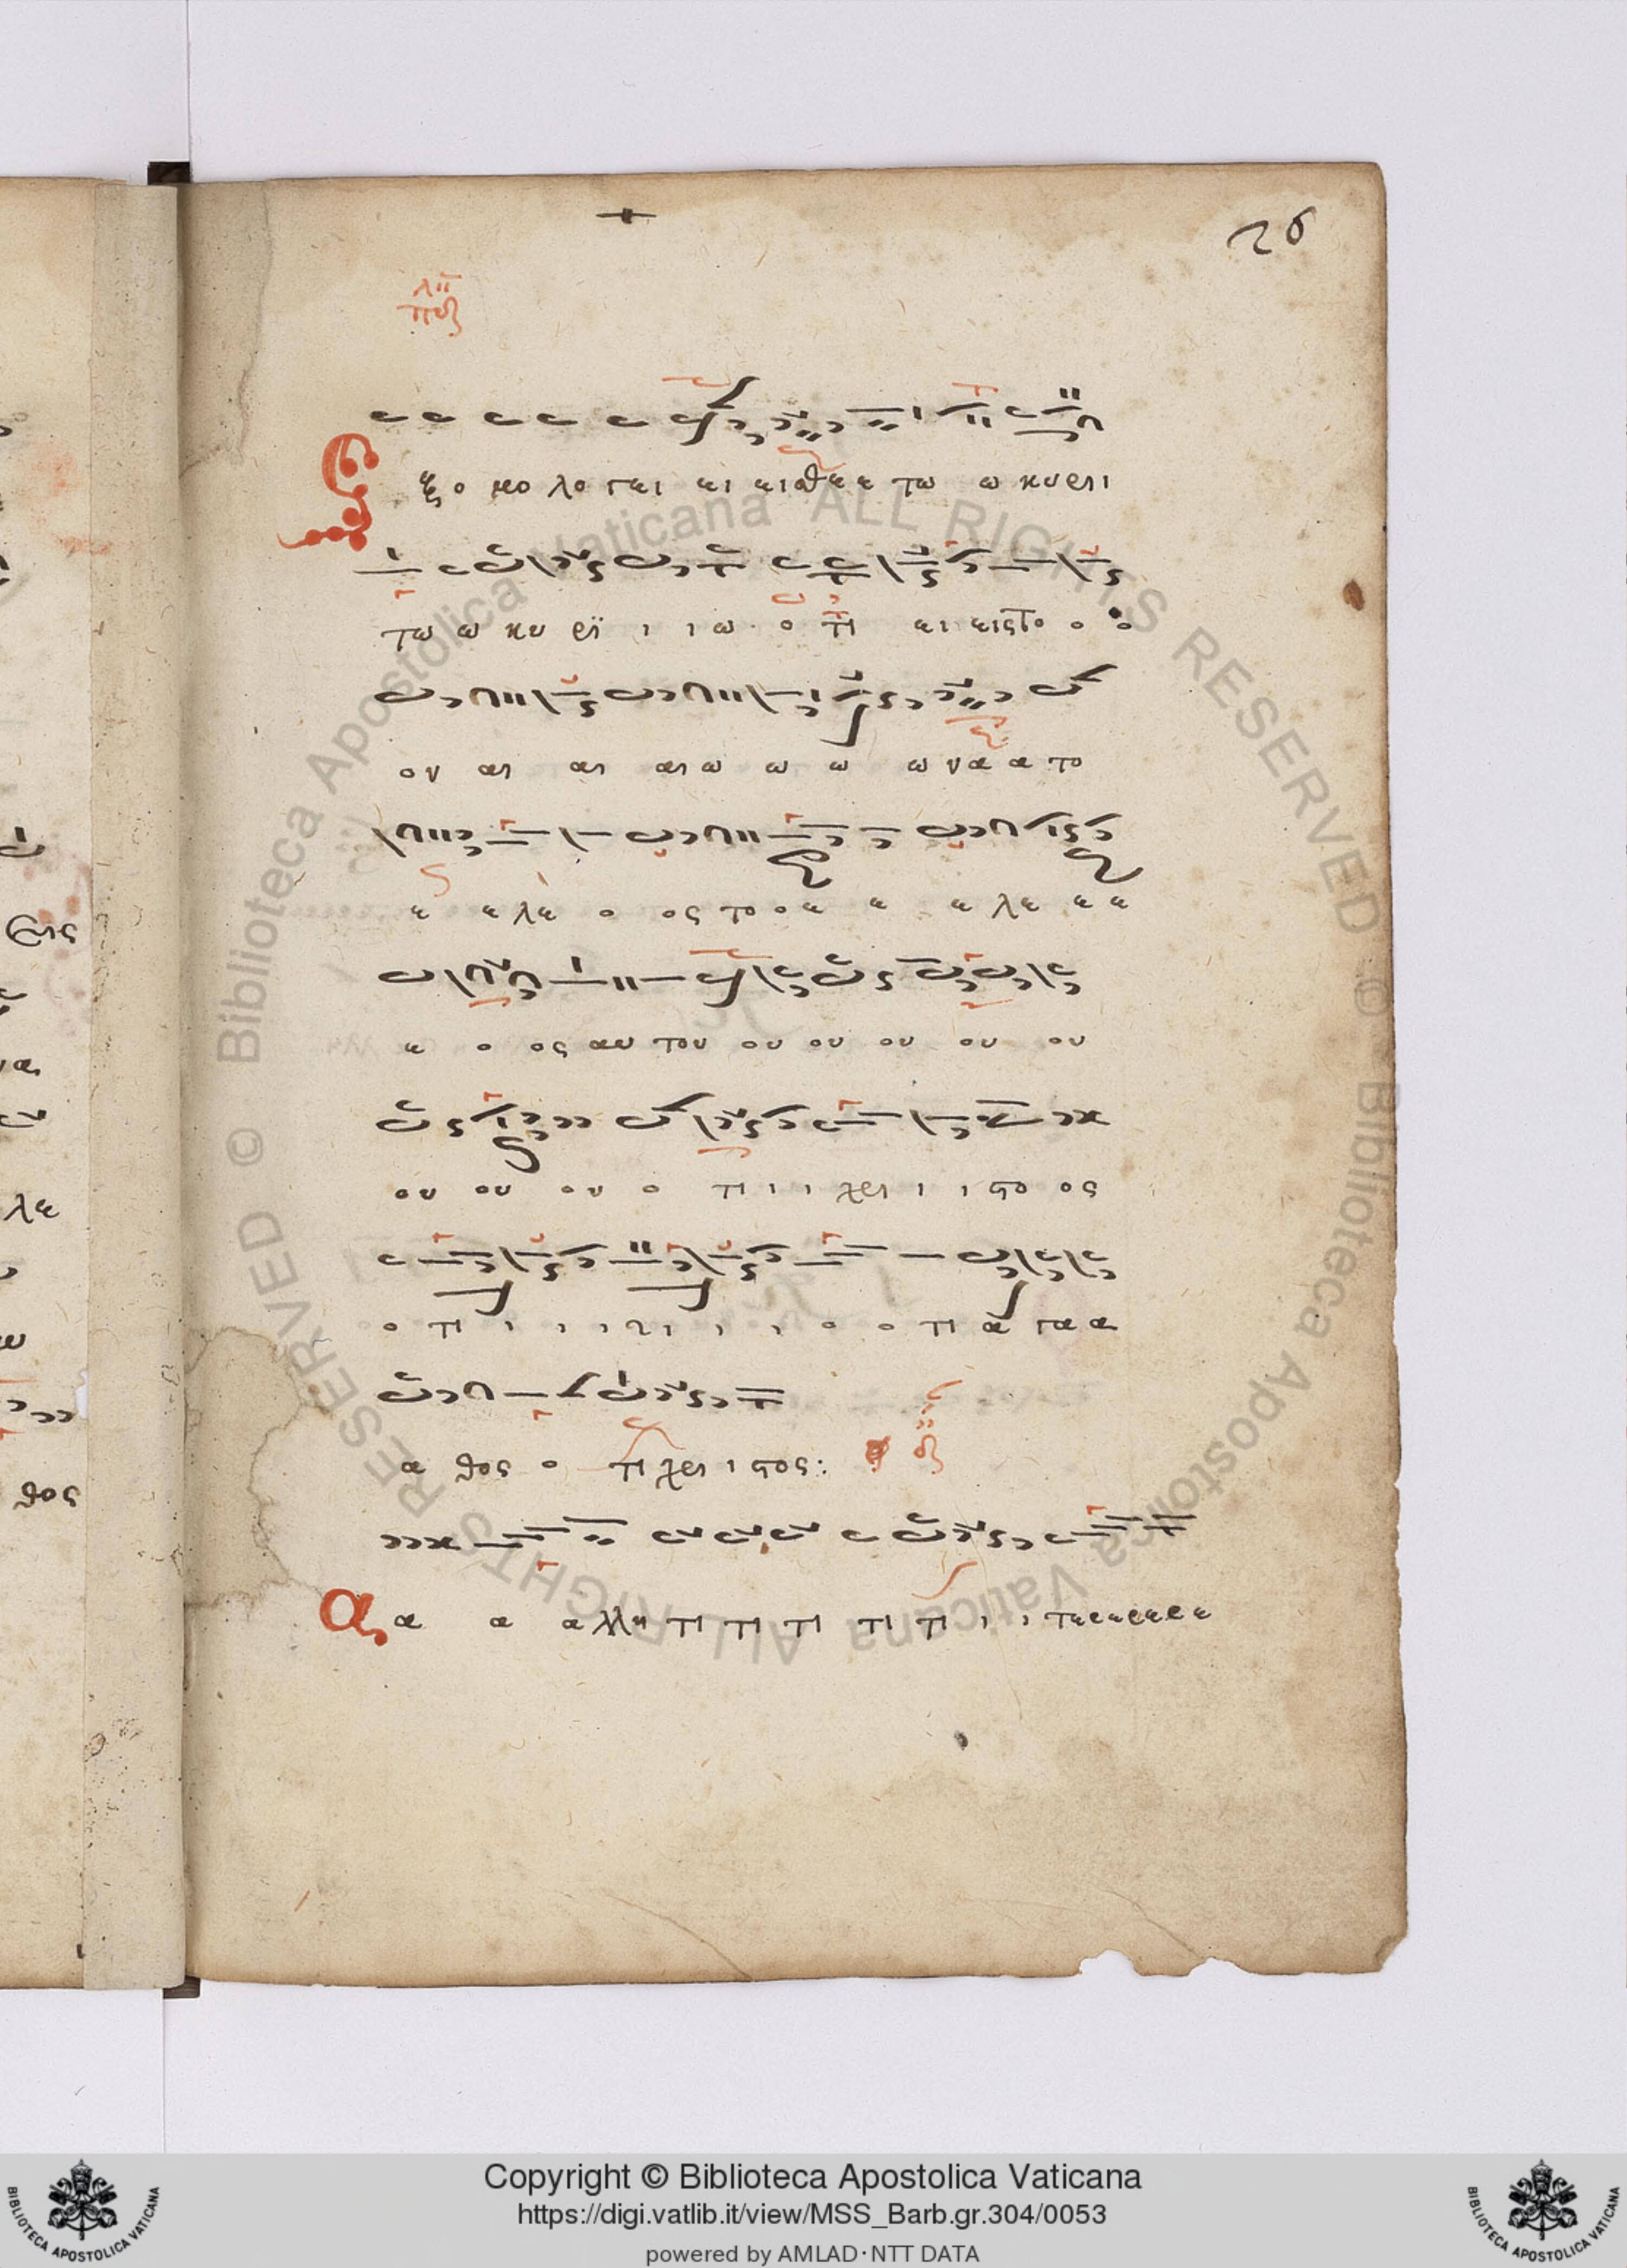 26
Ε ξο μο λο γει ει εισθε ε τω ω κυρι
τω ω κυ ρι ι ι ω ο τι ει εις το ο ο
ον αι αι αι ω ω ω ω να α το
ε ε λε ο ος το ο ε ε ε λε ε ε
ε ο ος αυ του ου ου ου ου ου
ου ου ου ο τι ι ι χρι ι ι στο ος
ο τι ι ι ι ι ι ο ο τι α γα α
α θος ο τι χρι ι στος:
Α α α α λλη τι τι τι τι τι ι ι τε ε ε ε ε ε ε
ους
να
λε
θος
Copyright © Biblioteca Apostolica Vaticana
https://digi.vatlib.it/view/MSS_Barb.gr.304/0053
powered by AMLAD·NTT DATA
BIBLIOTECA APOSTOLICA VATICANA
BIBLIOTECA APOSTOLICA VATICANA
© Biblioteca Apostolica Vaticana ALL RIGHTS RESERVED
© Biblioteca Apostolica Vaticana ALL RIGHTS RESERVED